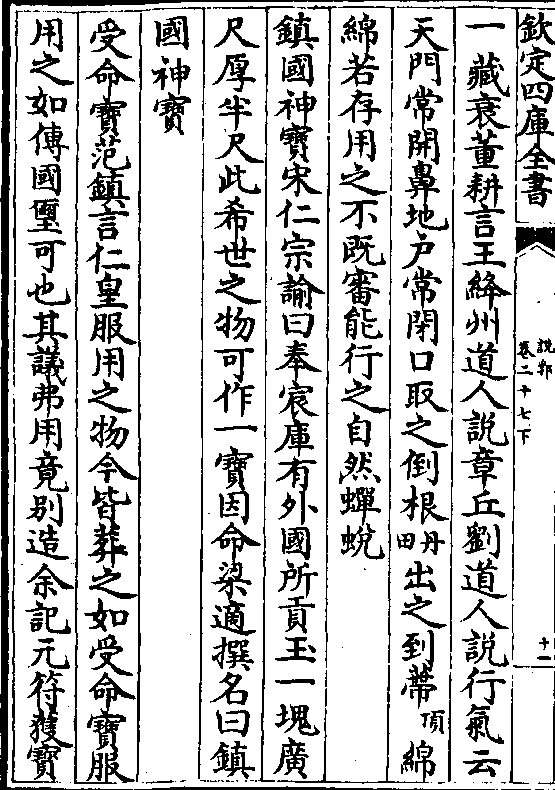 欽定四庫全書
說郛
卷二十七下
十一
一藏衰董耕言王絳州道人說章丘劉道人說行氣云
天門常開鼻地户常閉口取之倒根丹田出之到蔕頂綿
綿若存用之不既審能行之自然蟬蛻
鎮國神寳宋仁宗諭曰奉宸庫有外國所貢玉一塊廣
尺厚半尺此希世之物可作一寳因命梁適撰名曰鎮
國神寳
受命寳范鎮言仁皇服用之物今皆葬之如受命寳服
用之如傳國璽可也其議弗用竟别造余記元符獲寳